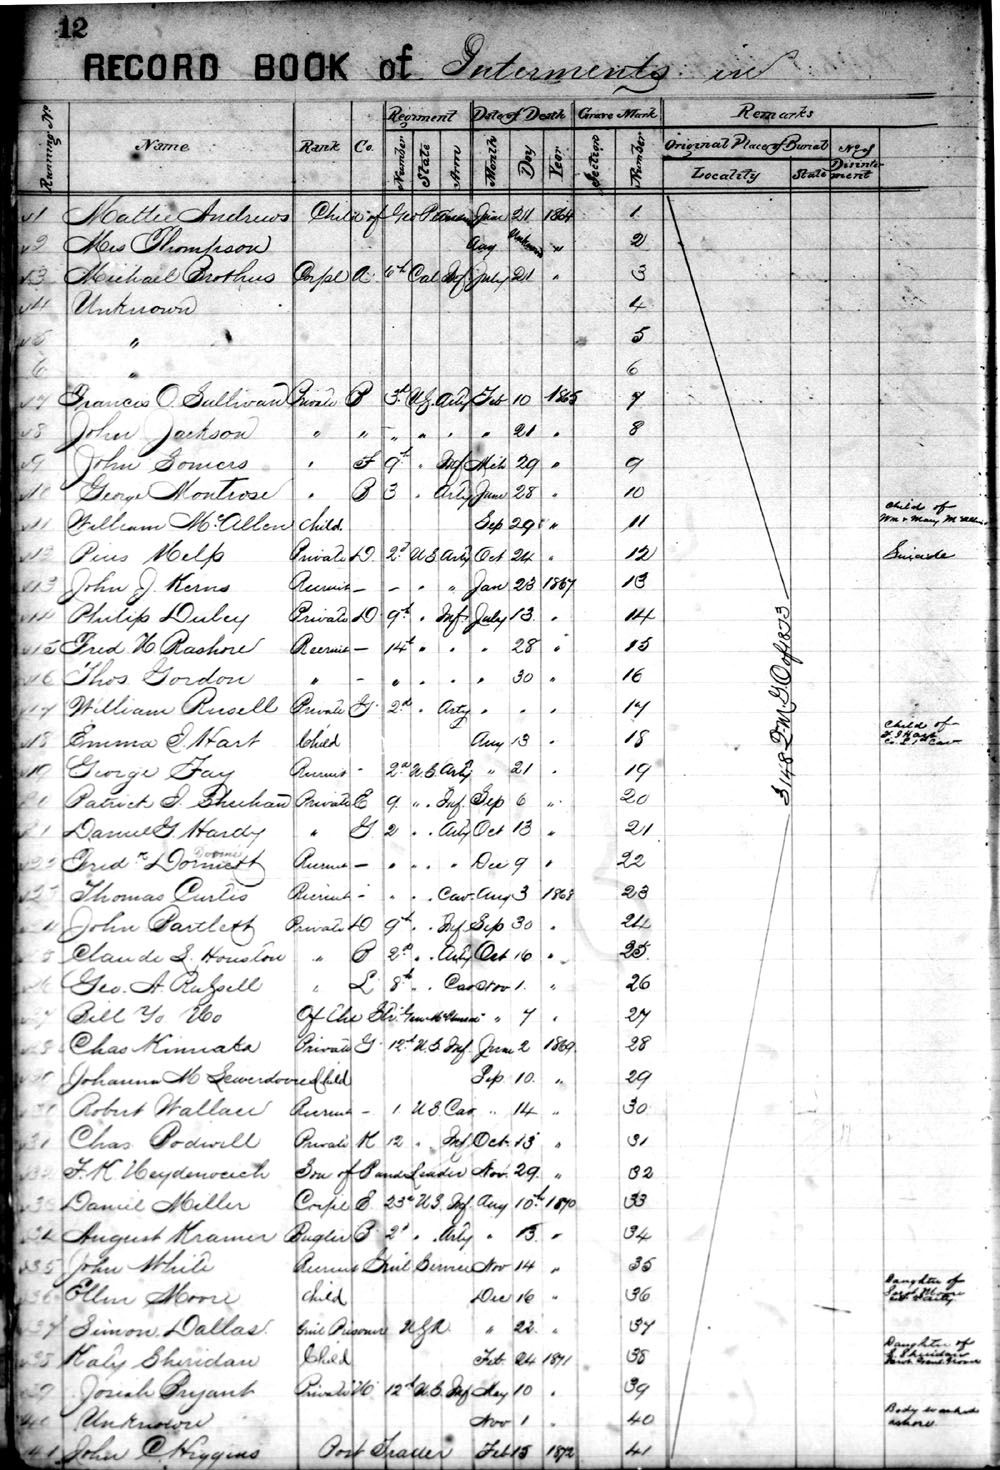 12
RECORD BOOK of Interments in
Running No. Name Rank Co. Regiment Number State Arm Date of Death Month Day Year Grave Mark Section Number Remarks Original Place of Burial Locality State No of Disinterment
1 Mattie Andrews Child of Geo P Jan 21 1864 1
2 Mrs Thompson Aug Unknown " 2
3 Michael Brothus Corpl A 6th Cal Inf July 21 " 3
4 Unknown 4
5 " 5
6 " 6
7 Francis O. Sullivan Private B 3d U.S. Arty Feb 10 1865 7
8 John Jackson " " " " " " 21 " 8
9 John Somers " F 9th " Inf Mch 29 " 9
10 George Montrose " B 3 " Arty June 28 " 10
11 William McAllen Child Sep 29 " 11 Child of Wm & Mary McAllen
12 Pius Melp Private D. 2d U.S. Arty Oct 24 " 12 Suicide
13 John J. Kerns Recruit - - " " Jan 23 1867 13
14 Philip Dubey Private D 9th " Inf July 13 " 14
15 Fred H Rashore Recruit - 14th " " " 28 " 15
16 Thos Gordon " - " " " " 30 " 16
17 William Rusell Private G. 2d " Arty " " " 17
18 Emma I. Hart Child Aug 13 " 18 Child of Hart Co. L 1st Cav
19 George Fay Recruit - 2d U.S. Arty " 21 " 19
20 Patrick I. Sheehan Private E 9 " Inf. Sep 6 " 20
21 Daniel G. Hardy " G 2 " Arty Oct 13 " 21
22 Fred Dornett Recruit - " " " Dec 9 " 22
23 Thomas Curtis Recruit - " " Cav. Aug 3 1868 23
24 John Bartlett Private D 9th " Inf Sep 30 " 24
25 Claude S. Houston " B 2d " Arty Oct 16 " 25
26 Geo. A. Ralsell " L 8th " Cav Nov 1 " 26
27 Bill Yo Ho Of the Str. " 7 " 27
28 Chas Kinnaka Private G. 12th U.S. Inf. June 2 1869 28
Johanna M Child Sep 10 " 29
Robert Wallace Recruit - 1 U.S. Cav " 14 " 30
31 Chas Podwill Private K 12 " Inf Oct. 13 " 31
32 F. K. Heydenreich Son of Band Leader Nov. 29 " 32
33 Daniel Miller Corpl E. 23d U.S. Inf Aug 10th 1870 33
34 August Kramer Bugler B 2d " Arty " 13 " 34
35 John White Recruit Genl Service Nov 14 " 35
36 Ellen Moore Child Dec 16 " 36 Daughter of Moore
37 Simon Dallas Genl Prisoner USA " 22 " 37
38 Katy Sheridan Child Feb 24 1871 38 Daughter of Sheridan
39 Josiah Bryant Private H 12th U.S. Inf May 10 " 39
40 Unknown Nov 1 " 40 Body washed ashore
41 John C. Higgins Post Trader Feb 15 1872 41
3148 Q.M.G.O. of 1873